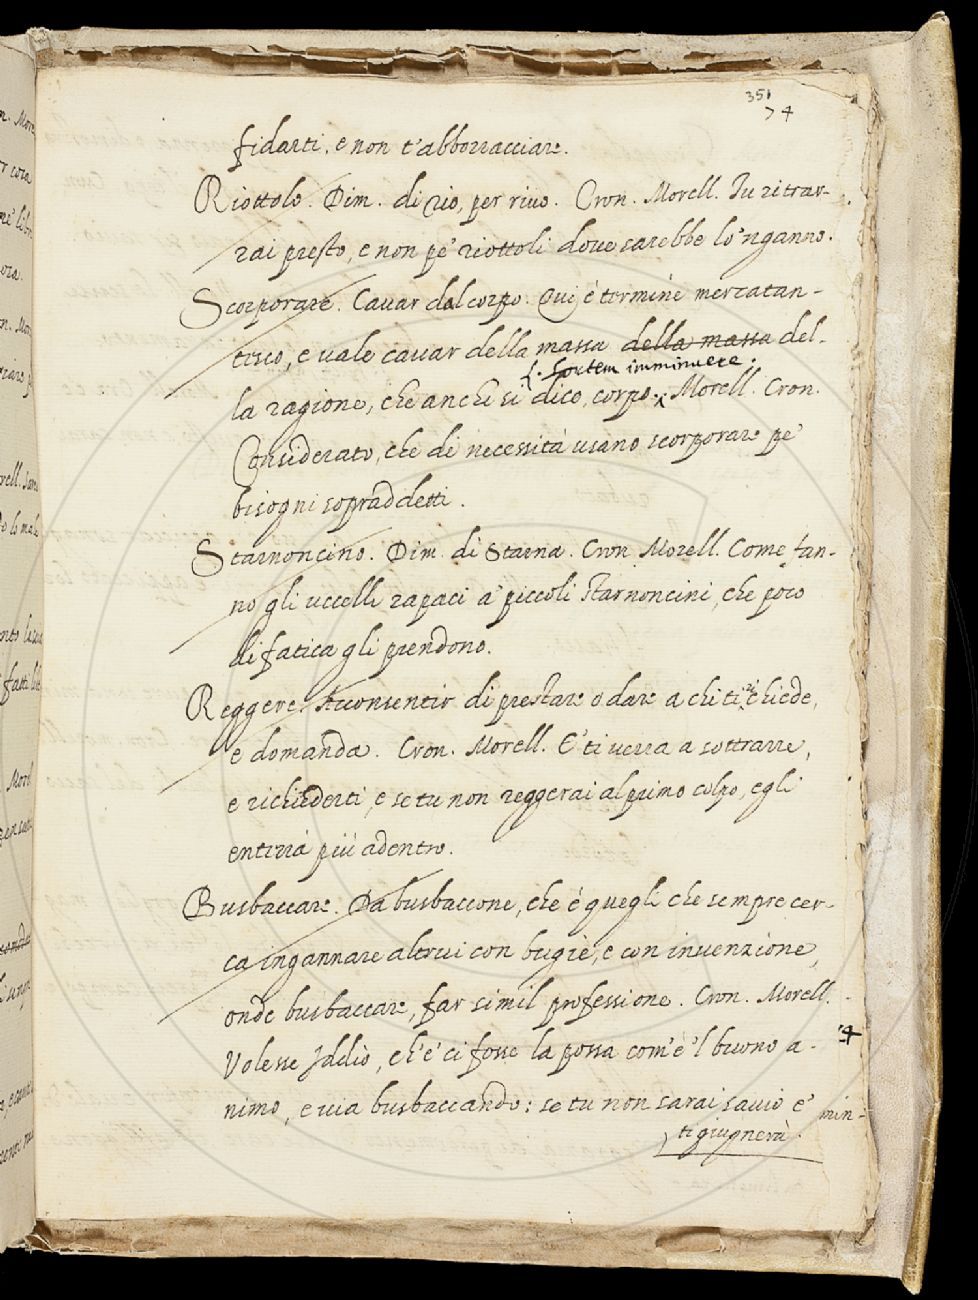 351
74
fidarti, e non t'abborracciare.
Riottolo. Dim. di rio, per rivo. Cron. Morell. Tu ritrar-
rai presto, e non pe' riottoli dove sarebbe lo 'nganno.
Scorporare. Cavar dal corpo. Qui è termine mercatan-
tesco, e vale cavar della massa della massa del-
f. sortem imminuere.
la ragione, che anche si dico, corpo. Morell. Cron.
Considerato, che di necessità usano scorporare pe'
bisogni sopraddetti.
Starnoncino. Dim. di Starna. Cron Morell. Come fan-
no gli uccelli rapaci a' piccoli starnoncini, che poco
di fatica gli prendono.
Reggere. Acconsentir di prestare o dare a chi ti chiede,
e domanda. Cron. Morell. E' ti verra a sottrarre,
e richiederti, e se tu non reggerai al primo colpo, egli
entirrà più adentro.
Busbaccare. Da busbaccone, che è quegli che sempre cer-
ca ingannare altrui con bugie, e con invenzione,
onde busbaccare, far simil professione. Cron. Morell.
Volesse Iddio, ch'e' ci fosse la possa com'è 'l buono a-
nimo, e via busbaccando: se tu non sarai savio e'
ti giugnerà.